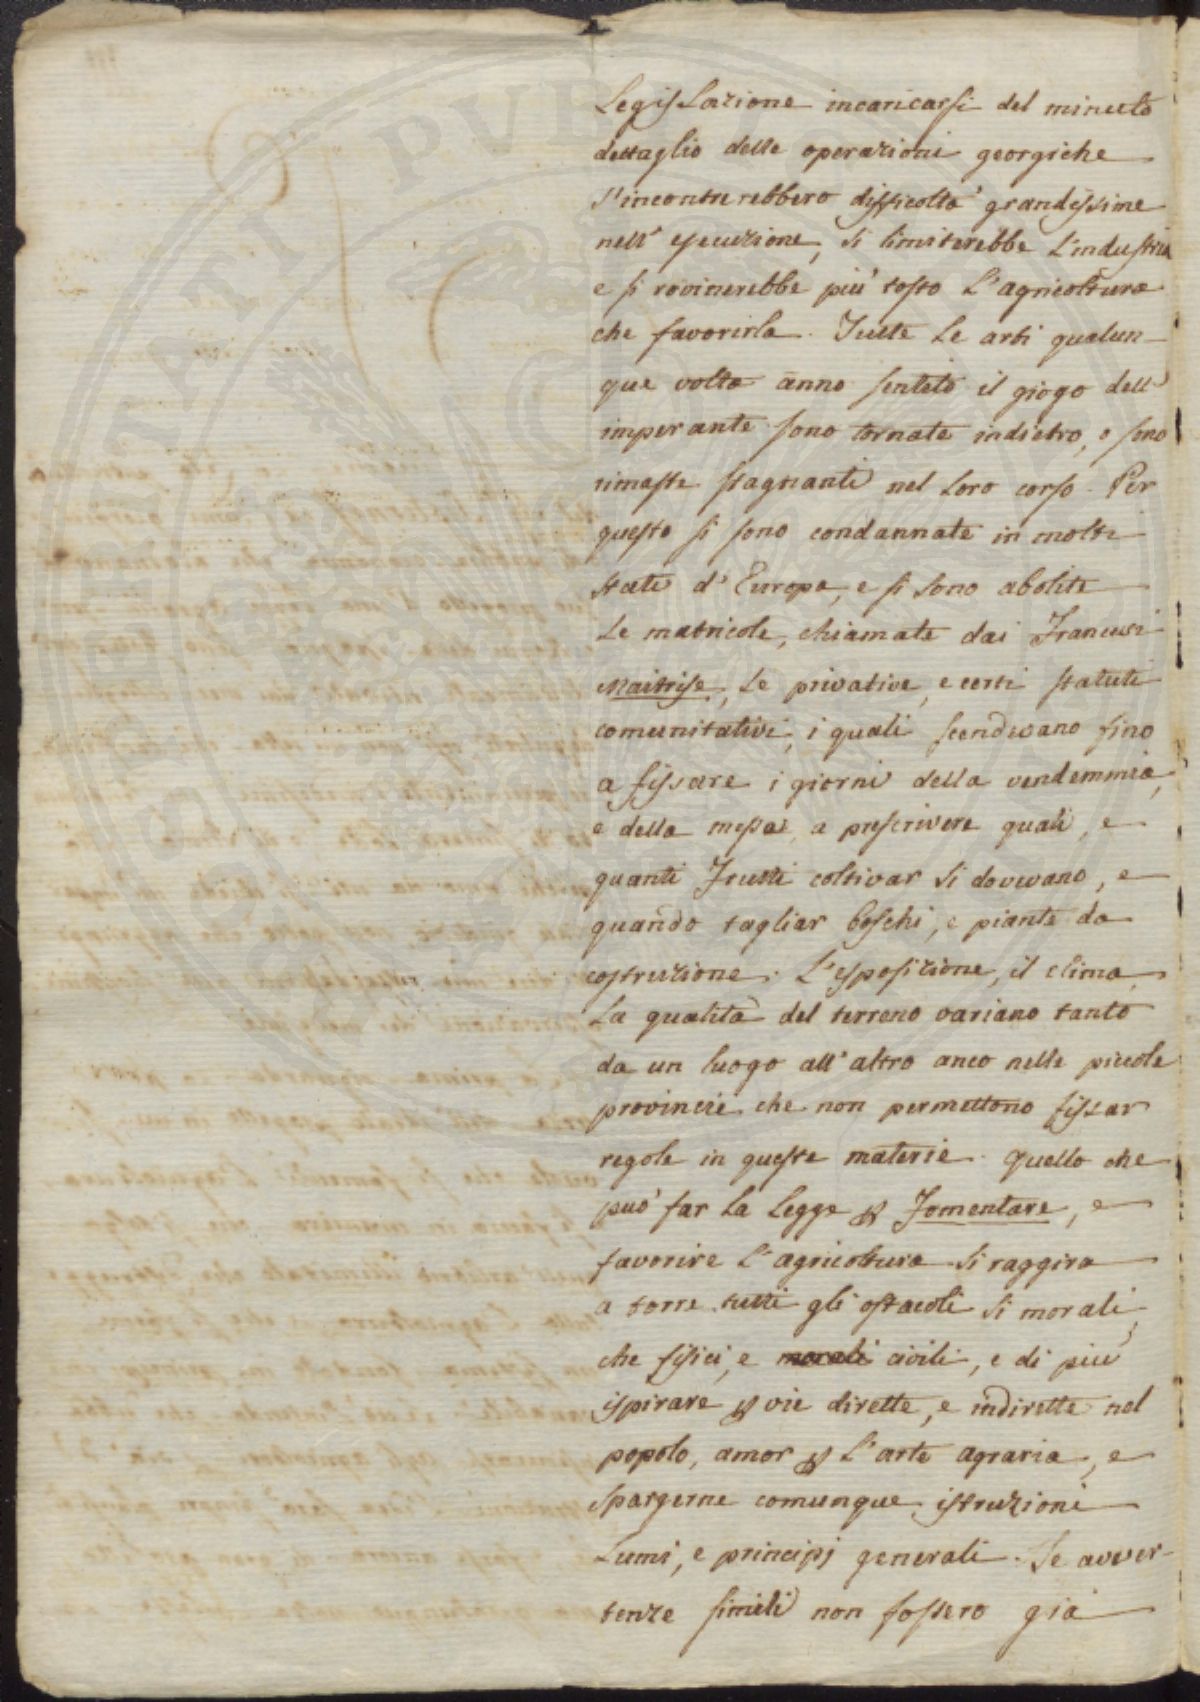 Legislazione incaricarsi del minuto
dettaglio delle operazioni georgiche
s'incontrerebbero difficoltà grandissime
nell' esecuzione, si limiterebbe l'industria
e si rovinerebbe più tosto l'agricoltura
che favorirla. Tutte le arti qualun-
que volta anno sentito il giogo dell'
imperante sono tornate indietro, o sono
rimaste stagnanti nel loro corso. Per
questo si sono condannate in molti
stati d'Europa, e si sono abolite
le matricole, chiamate dai Francesi
Maitrise, le privative, e certi statuti
comunitativi, i quali scendevano fino
a fissare i giorni della vendemmia,
e della messe, a prescrivere quali, e
quanti Frutti coltivar si dovevano, e
quando tagliar boschi, e piante da
costruzione. L'esposizione, il clima,
la qualità del terreno variano tanto
da un luogo all'altro anco nelle piccole
provincie che non permettono fissar
regole in queste materie. Quello che
può far la Legge p Fomentare, e
favorire l'agricoltura si raggira
a torre tutti gli ostacoli sì morali,
che fisici, e morali civili, e di più
ispirare p vie dirette, e indirette nel
popolo, amor p l'arte agraria, e
spargerne comunque istruzioni
Lumi, e principj generali. Se avver-
tenze simili non fossero già